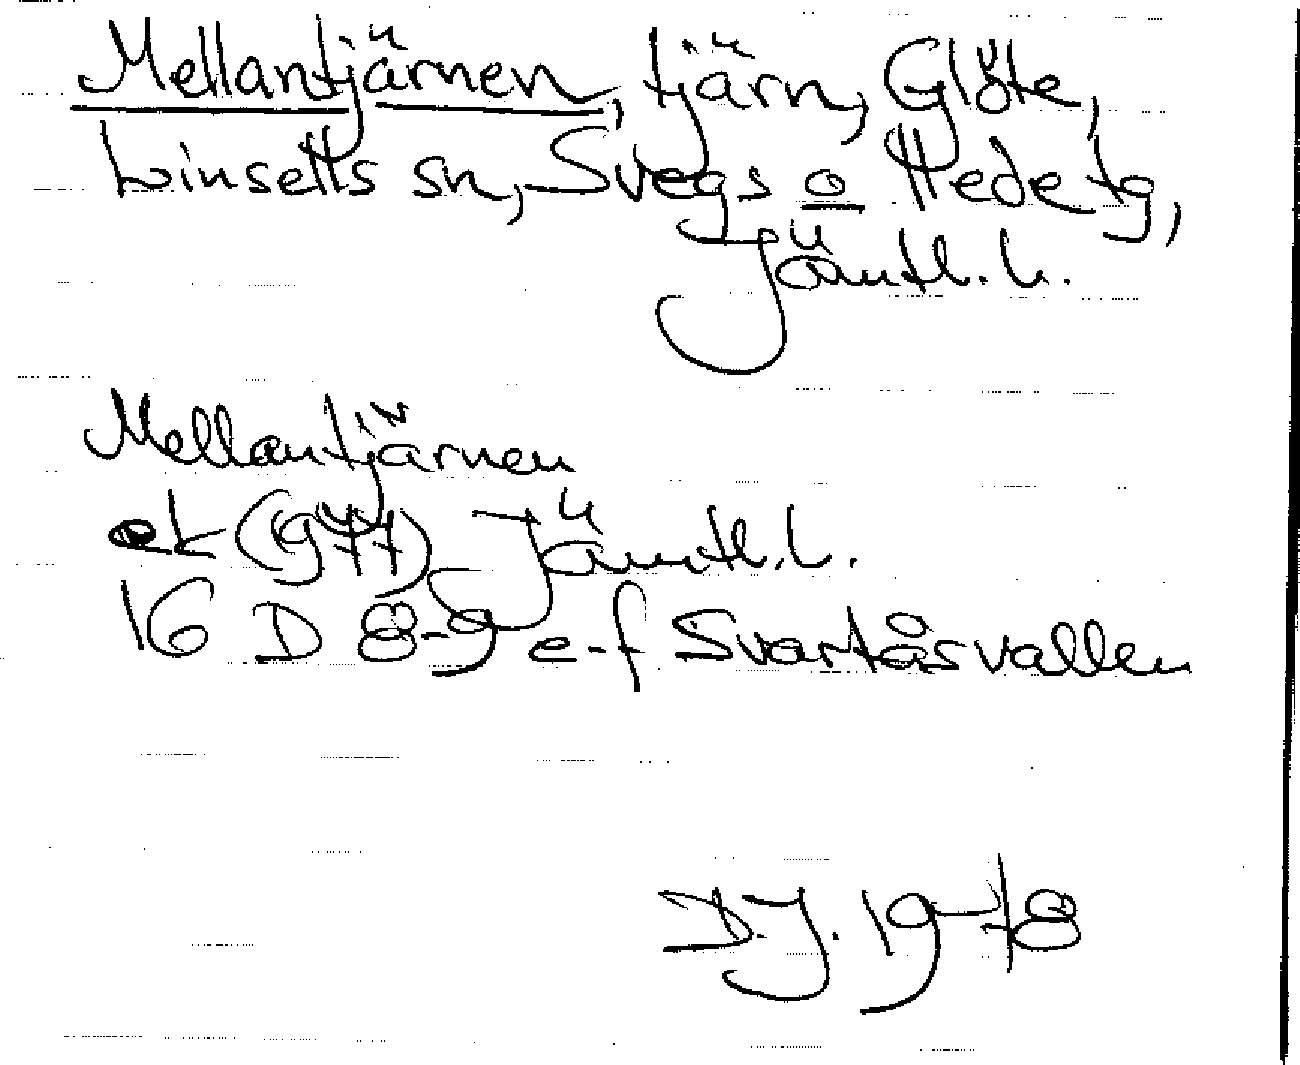 Mellantjärnen, tjärn, Glöte,
Linsells sn, Svegs o Hede tg,
Jämtl. l.
Mellantjärnen
ek (977) Jämtl. L.
16 D 8-9 e-f Svartåsvallen
D.J. 1978